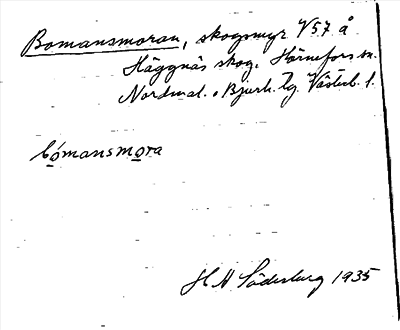 Bomansmoran, skogsmyr V57 å
Häggnäs skog. Hörnefors sn.
Nordmal. o Bjurh. tg. Västerb. l.
bómansmora
H N Söderberg 1935